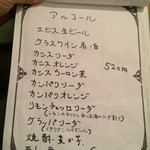 アルコール
エビス生ビール
グラスワイン 赤・白
カシスソーダ
カシスオレンジ 520円
カシスウーロン茶
カンパリソーダ
カンパリオレンジ
リモンチェッロソーダ
グラッパソーダ
(イタリアンハイボール)
焼酎・麦か芋